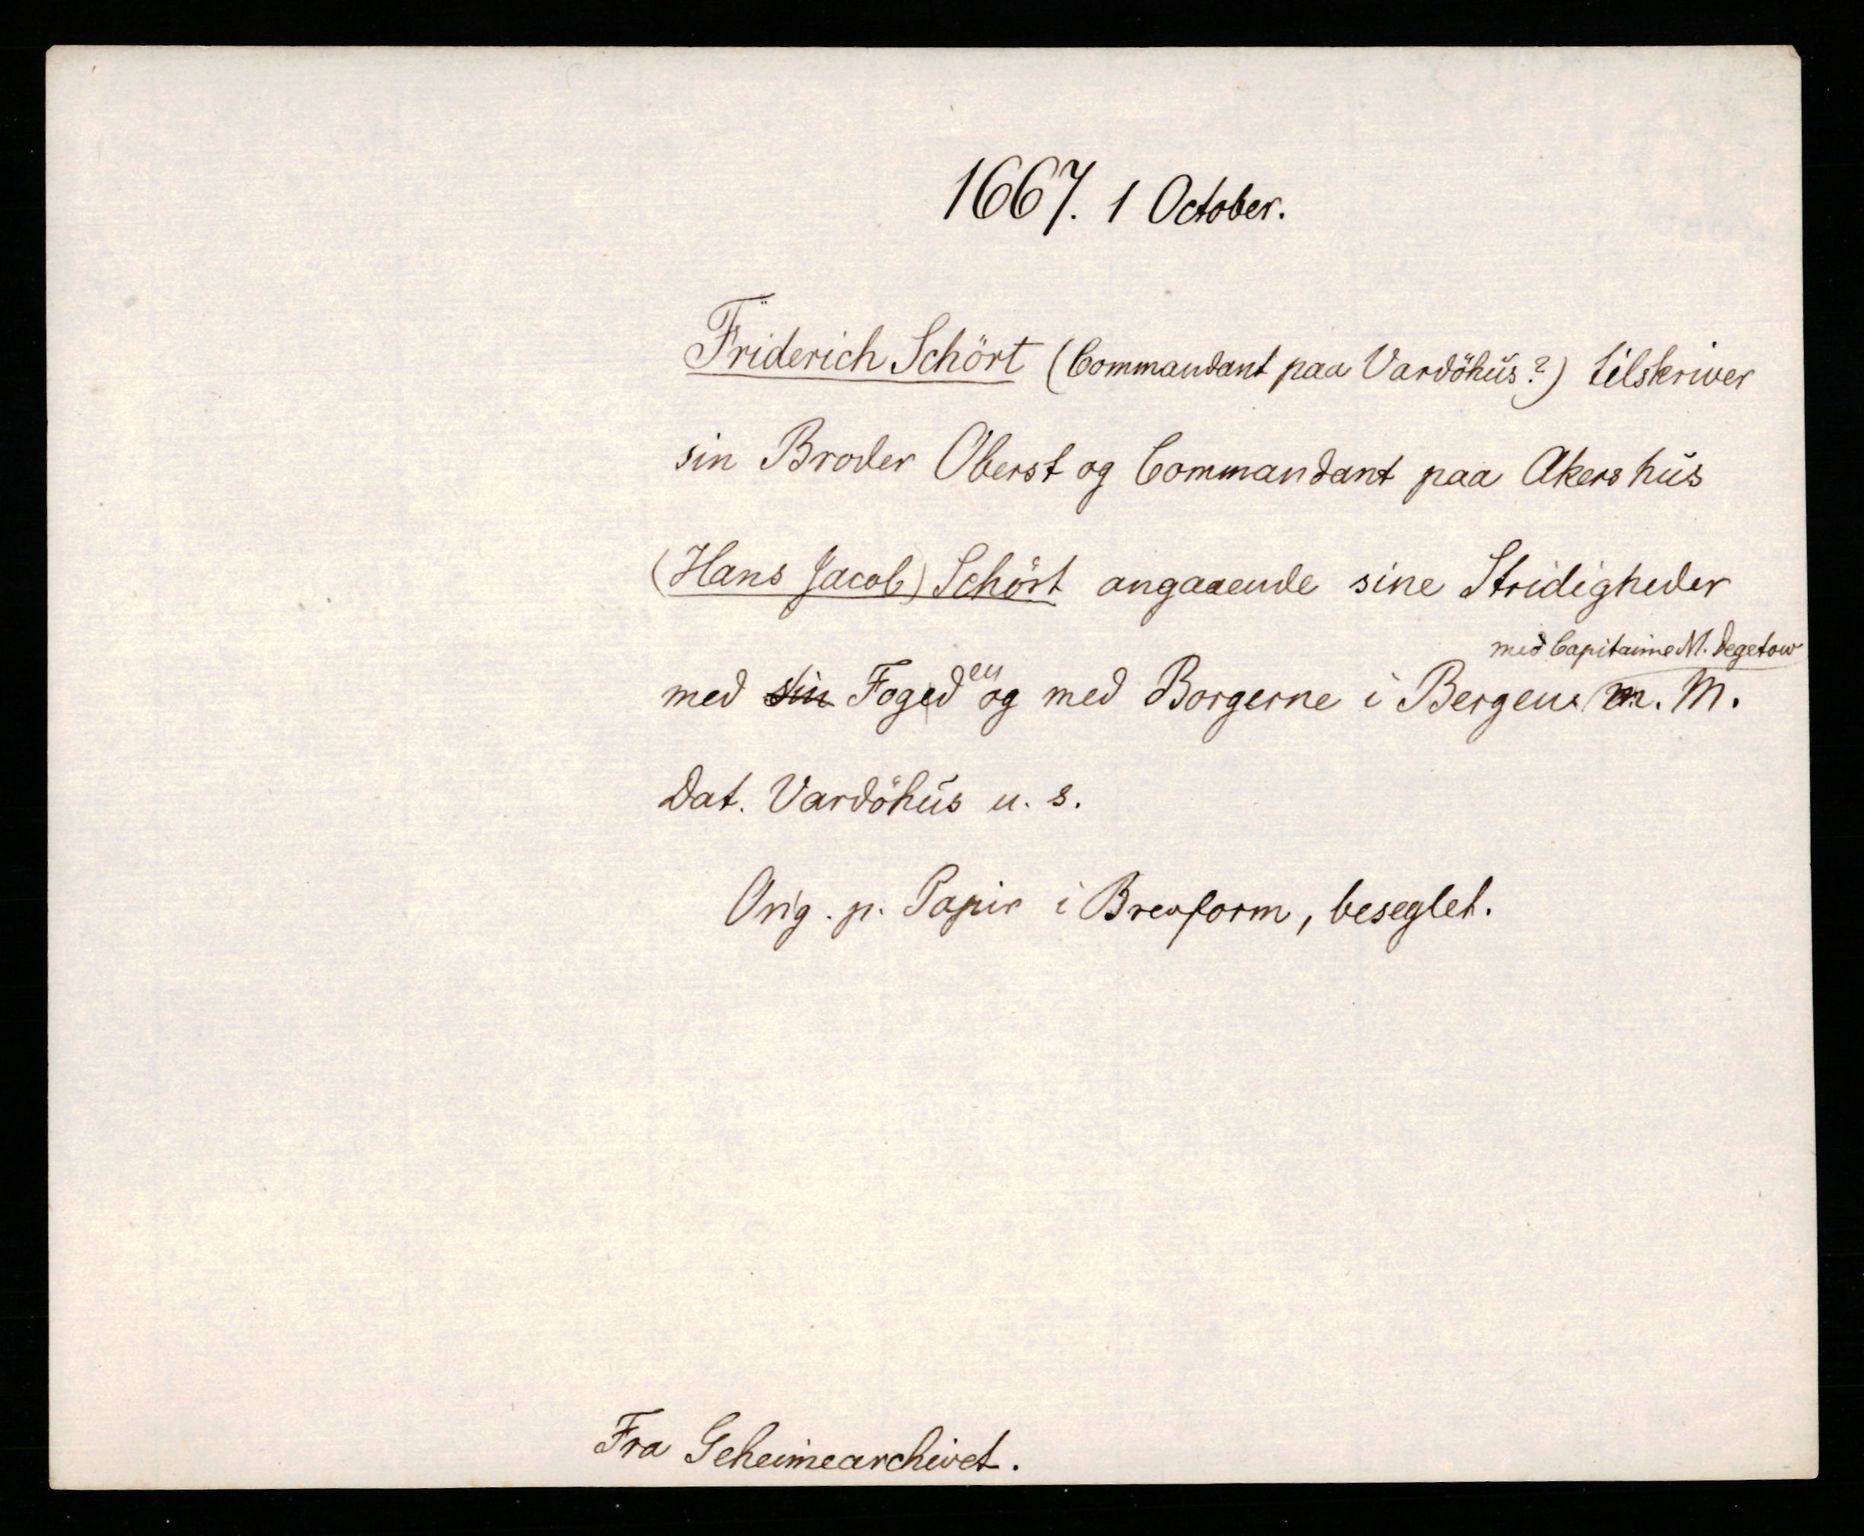 1667. 1 October.
Friderich Schört (Commandant paa Vardöhus?) tilskriver
sin Broder Oberst og Commandant paa Akershus
(Hans Jacob) Schört angaaende sine Stridigheder
med Capitaine M. Degetow
med sin Fogeden og med Borgerne i Bergen m. M.
Dat. Vardöhus u. s.
Orig. p. Papir i Brevform, beseglet.
Fra Geheimearchivet.